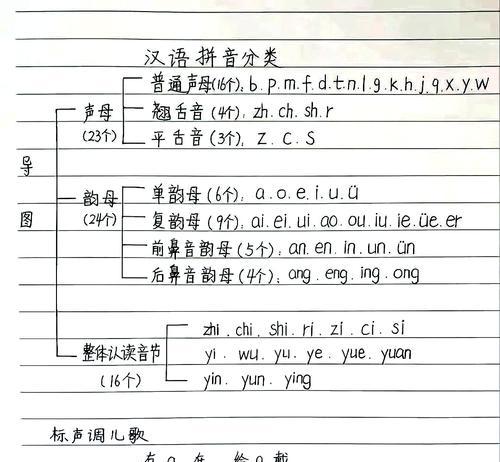 汉语拼音分类
普通声母(16个), b.p.m.f.d.t.n.l.g.k.h.j.q.x.y.w
声母 翘舌音(4个), zh.ch.sh.r
(23个) 平舌音(3个), z.c.s
导
韵母 单韵母(6个): a.o.e.i.u.ü
图 (24个) 复韵母(9个): ai.ei.ui.ao.ou.iu.ie.üe.er
前鼻音韵母(5个): an.en.in.un.ün
后鼻音韵母(4个): ang.eng.ing.ong
zhi.chi.shi.ri.zi.ci.si
整体认读音节 yi.wu.yu.ye.yue.yuan
(16个) yin.yun.ying
标声调儿歌